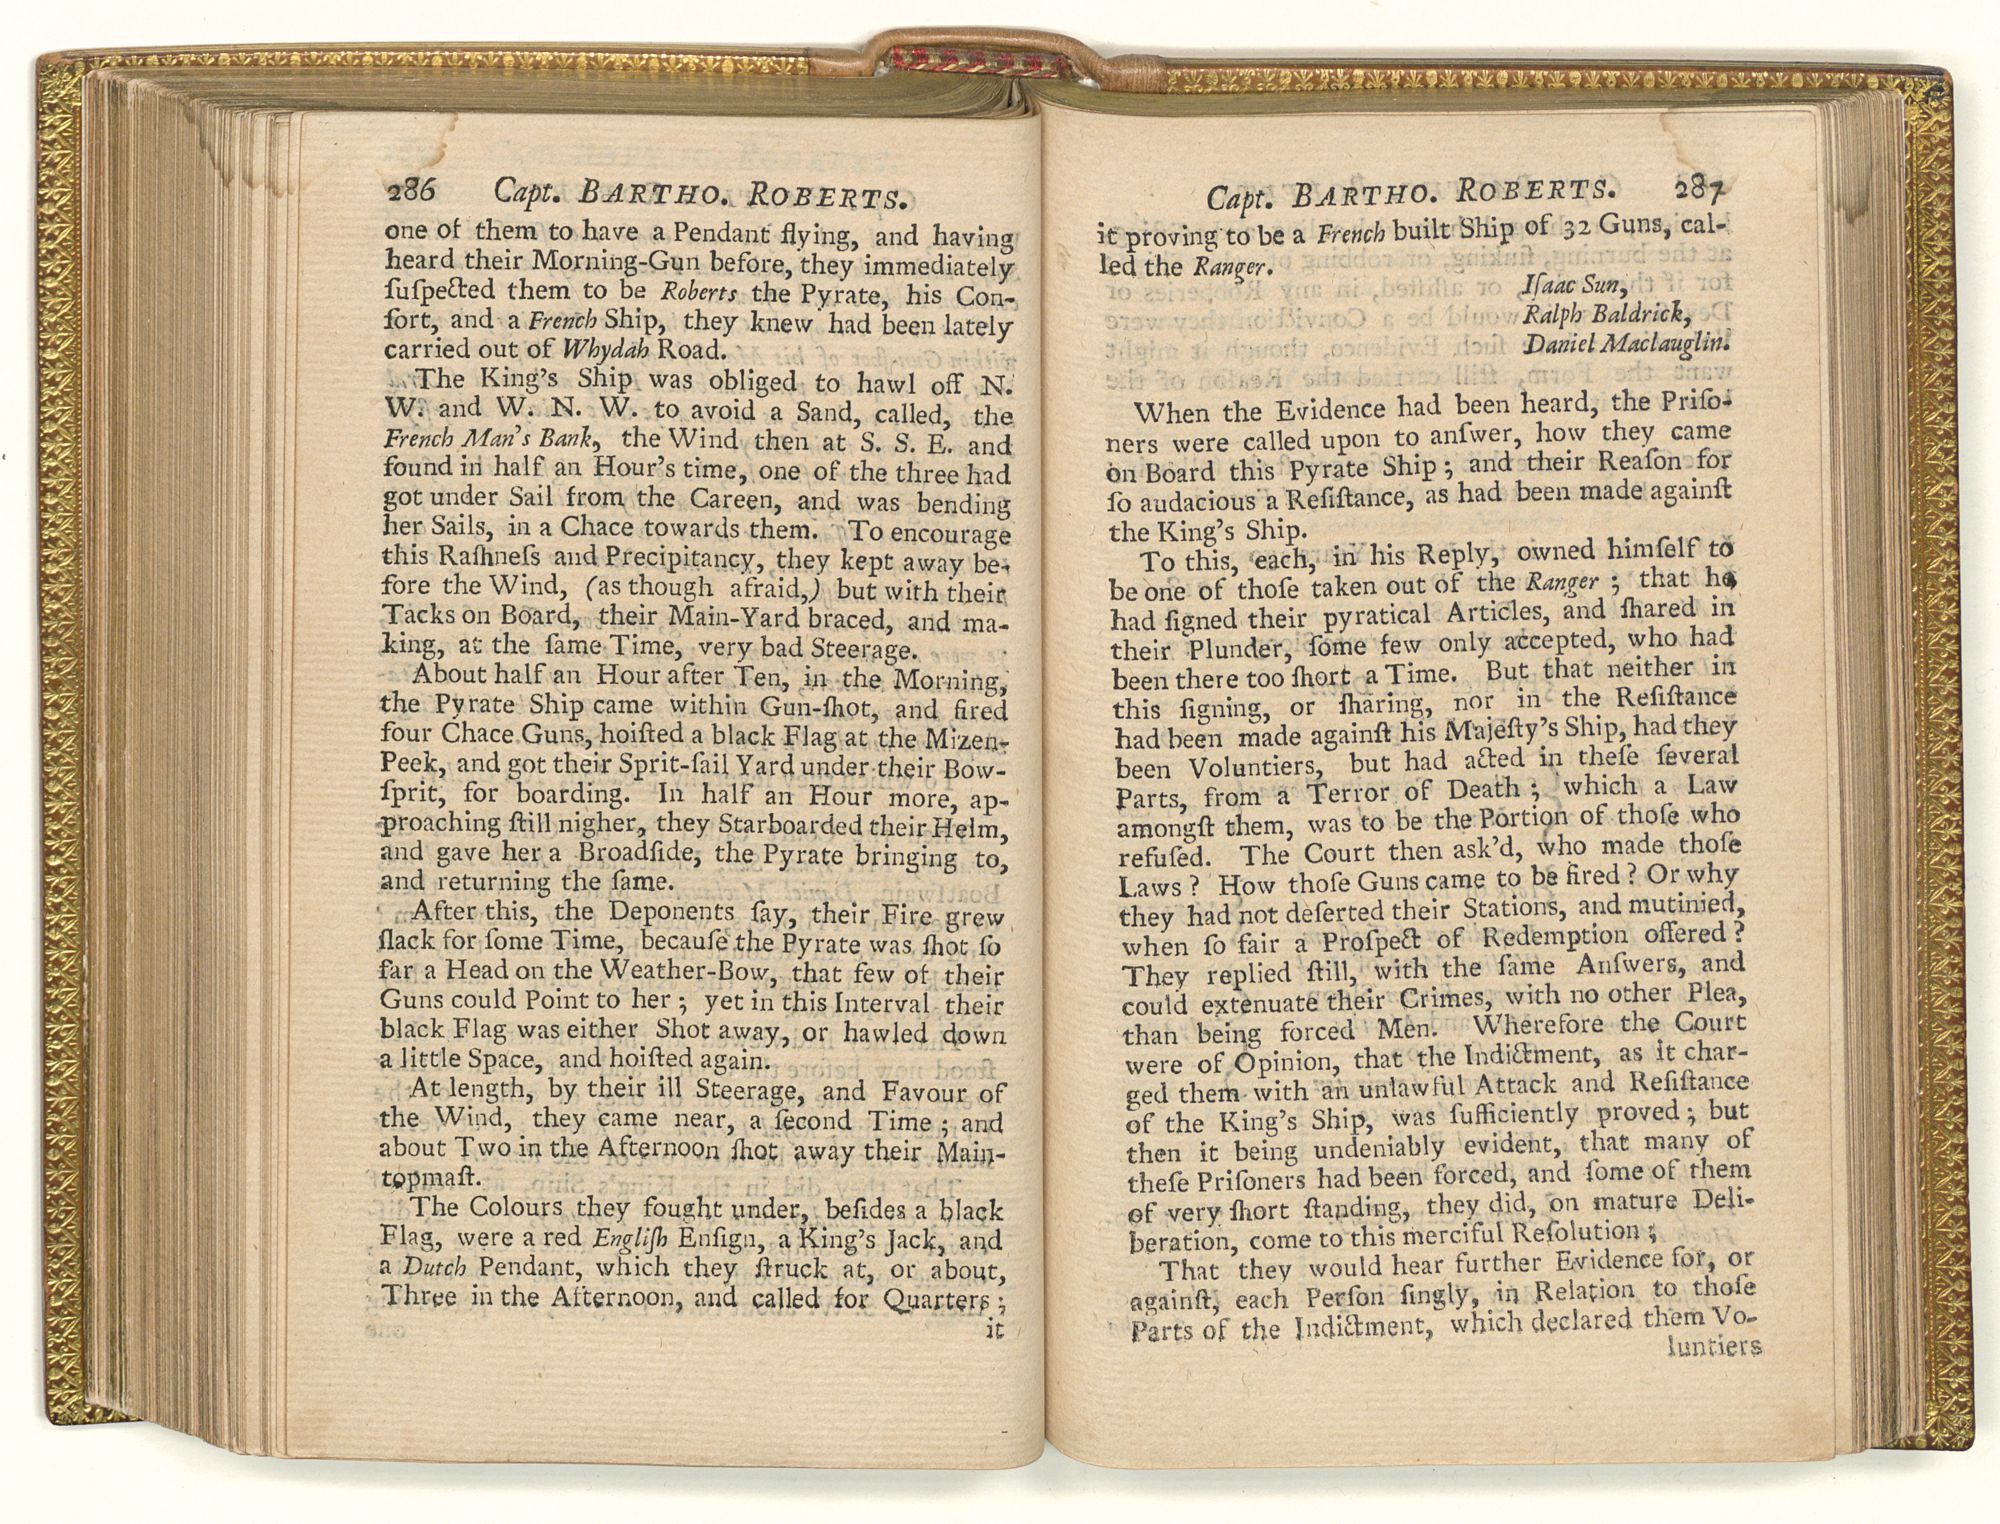 286 Capt. BARTHO. ROBERTS.
one of them to have a Pendant flying, and having
heard their Morning-Gun before, they immediately
ſuſpected them to be Roberts the Pyrate, his Con-
ſort, and a French Ship, they knew had been lately
carried out of Whydah Road.
The King's Ship was obliged to hawl off N.
W. and W. N. W. to avoid a Sand, called, the
French Man's Bank, the Wind then at S. S. E. and
found in half an Hour's time, one of the three had
got under Sail from the Careen, and was bending
her Sails, in a Chace towards them. To encourage
this Raſhneſs and Precipitancy, they kept away be-
fore the Wind, (as though afraid,) but with their
Tacks on Board, their Main-Yard braced, and ma-
king, at the ſame Time, very bad Steerage.
About half an Hour after Ten, in the Morning,
the Pyrate Ship came within Gun-ſhot, and fired
four Chace Guns, hoiſted a black Flag at the Mizen-
Peek, and got their Sprit-ſail Yard under their Bow-
ſprit, for boarding. In half an Hour more, ap-
proaching ſtill nigher, they Starboarded their Helm,
and gave her a Broadſide, the Pyrate bringing to,
and returning the ſame.
After this, the Deponents ſay, their Fire grew
ſlack for ſome Time, becauſe the Pyrate was ſhot ſo
far a Head on the Weather-Bow, that few of their
Guns could Point to her; yet in this Interval their
black Flag was either Shot away, or hawled down
a little Space, and hoiſted again.
At length, by their ill Steerage, and Favour of
the Wind, they came near, a ſecond Time; and
about Two in the Afternoon ſhot away their Main-
topmaſt.
The Colours they fought under, beſides a black
Flag, were a red Engliſh Enſign, a King's Jack, and
a Dutch Pendant, which they ſtruck at, or about,
Three in the Afternoon, and called for Quarters;
it
Capt. BARTHO. ROBERTS. 287
it proving to be a French built Ship of 32 Guns, cal-
led the Ranger.
Iſaac Sun,
Ralph Baldrick,
Daniel Maclauglin.
When the Evidence had been heard, the Priſo-
ners were called upon to anſwer, how they came
on Board this Pyrate Ship; and their Reaſon for
ſo audacious a Reſiſtance, as had been made againſt
the King's Ship.
To this, each, in his Reply, owned himſelf to
be one of thoſe taken out of the Ranger; that he
had ſigned their pyratical Articles, and ſhared in
their Plunder, ſome few only accepted, who had
been there too ſhort a Time. But that neither in
this ſigning, or ſharing, nor in the Reſiſtance
had been made againſt his Majeſty's Ship, had they
been Voluntiers, but had acted in theſe ſeveral
Parts, from a Terror of Death; which a Law
amongſt them, was to be the Portion of thoſe who
refuſed. The Court then ask'd, who made thoſe
Laws? How thoſe Guns came to be fired? Or why
they had not deſerted their Stations, and mutinied,
when ſo fair a Proſpect of Redemption offered?
They replied ſtill, with the ſame Anſwers, and
could extenuate their Crimes, with no other Plea,
than being forced Men. Wherefore the Court
were of Opinion, that the Indictment, as it char-
ged them with an unlawful Attack and Reſiſtance
of the King's Ship, was ſufficiently proved; but
then it being undeniably evident, that many of
theſe Priſoners had been forced, and ſome of them
of very ſhort ſtanding, they did, on mature Deli-
beration, come to this merciful Reſolution;
That they would hear further Evidence for, or
againſt, each Perſon ſingly, in Relation to thoſe
Parts of the Indictment, which declared them Vo-
luntiers